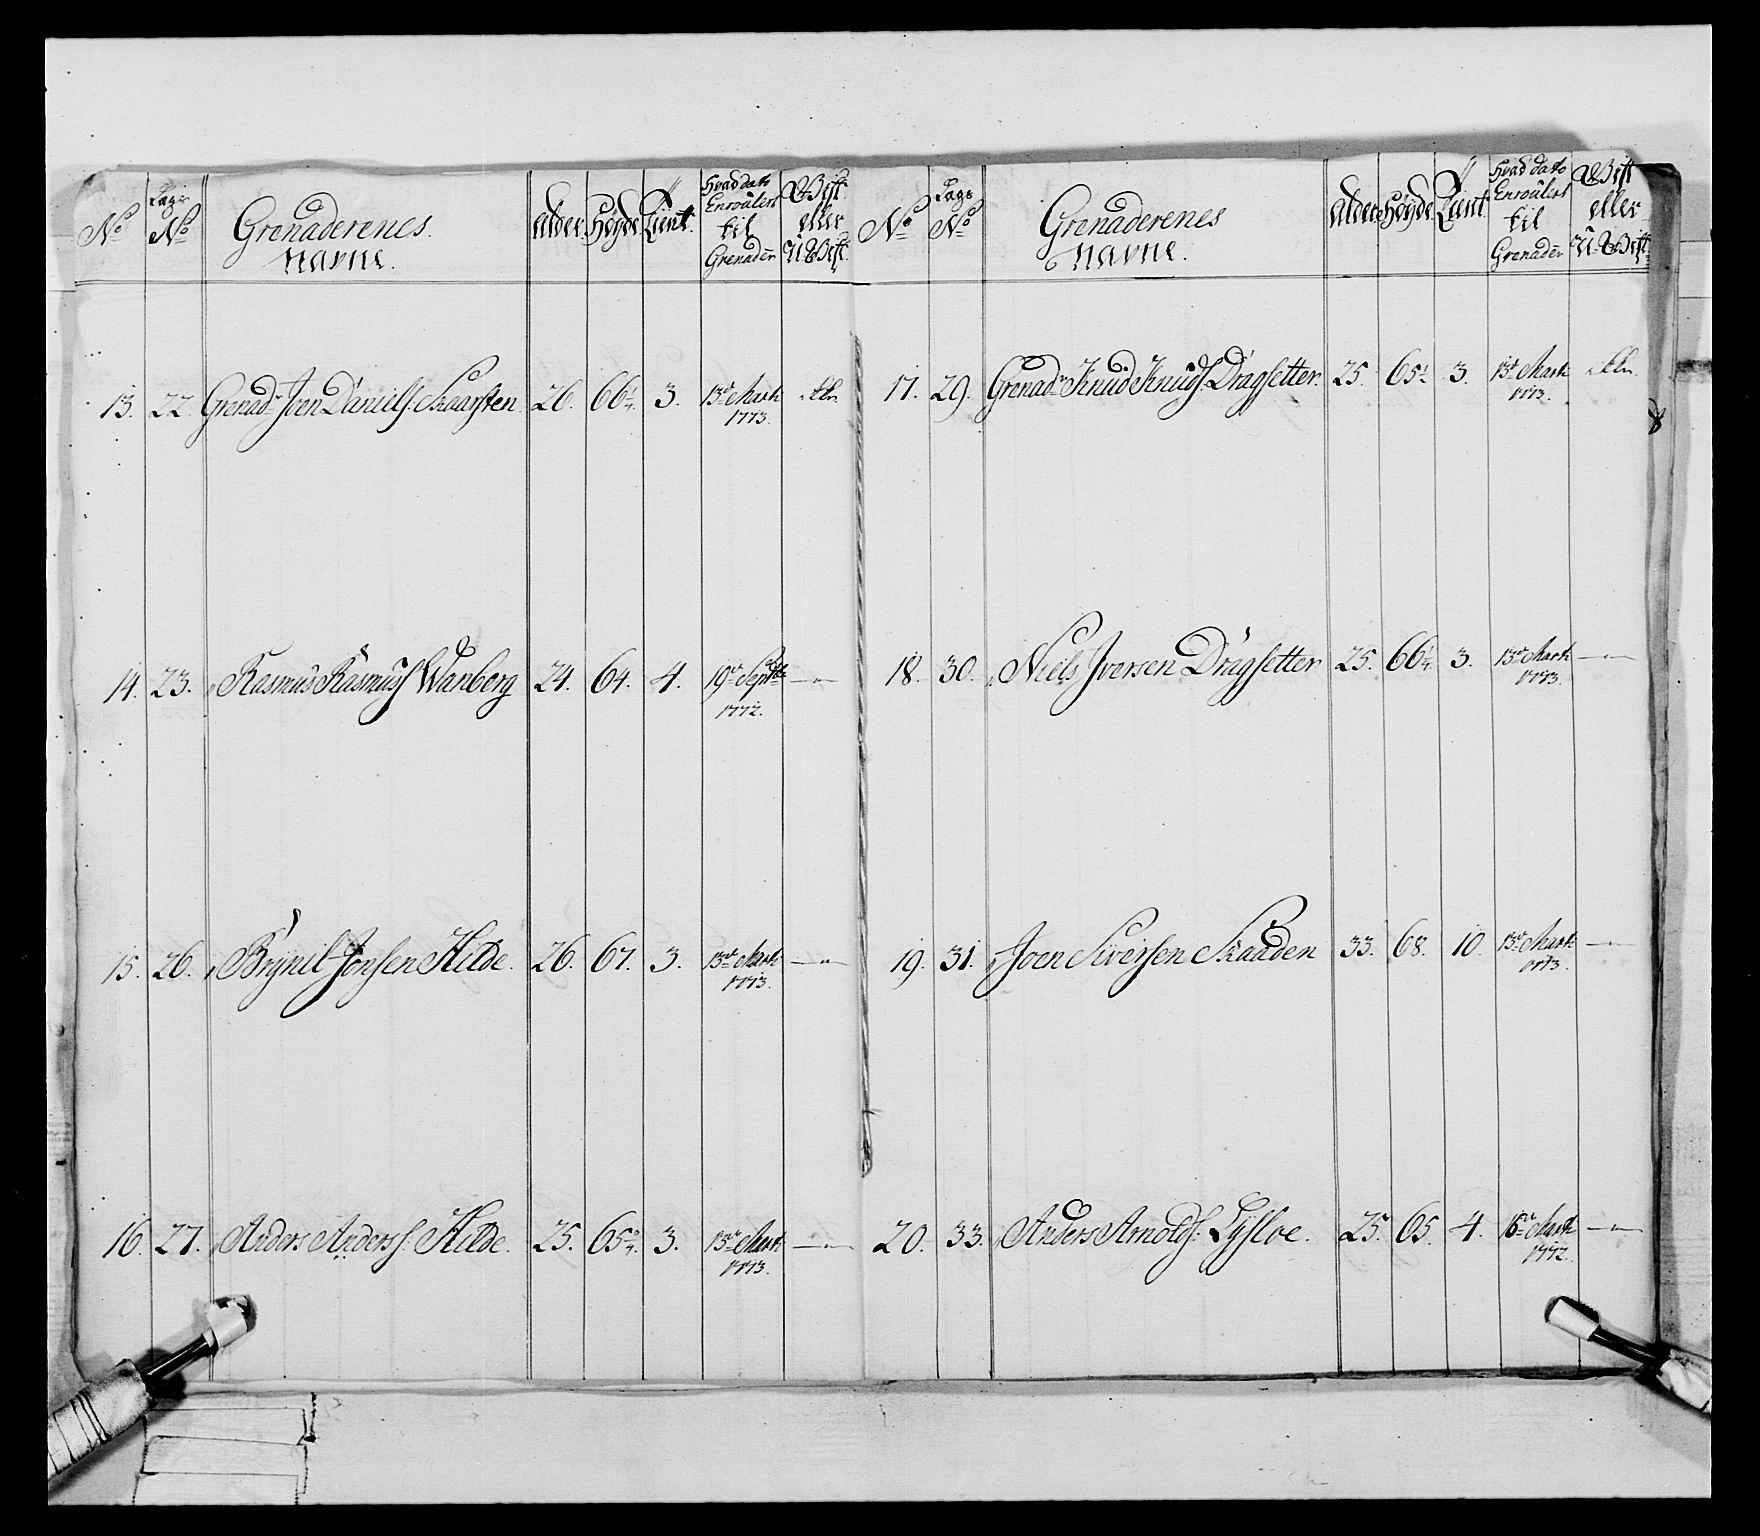 No
Lægs No
Grenaderenes navne.
Alder.
Høyde.
Tient.
Hvad dato Enroulert til Grenader
Gift eller U-Gift.
13. 22 Grenadr Joen Daniels. Skaarsten 26. 66¼. 3. 13de Marti 1773.
14. 23. " Rasmus Rasmuss Wanberg 24. 64. 4. 19de Septbr 1772. — " —
15. 26. " Brynil Jonsen Hilde. 26. 67. 3. 13de Marti 1773. — " —
16. 27. " Anders Anderss. Hilde. 25. 65¾. 3. 13de Marti 1773. — " —
No
Lægs No
Grenaderenes navne.
Alder.
Høyde.
Tient.
Hvad dato Enroulert til Grenader
Gift eller U-Gift.
17. 29. Grenadr Knud Knuds Dragsetter. 25. 65½ 3. 13de Marti 1773.
18. 30. " Niels Iversen Dragsetter 25. 66¼. 3. 13de Marti 1773. — " —
19. 31. " Joen Siversen Skaaden 33. 68. 10. 13de Marti 1773. — " —
20. 33. " Anders Arnolds. Lysloe. 25. 65. 4. 16de Marti 1772. — " —